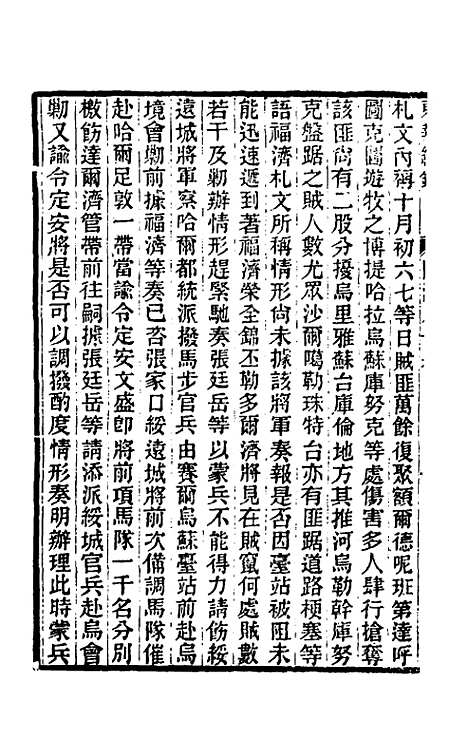 札文內稱十月初六七等日賊匪萬餘復聚額爾德呢班第達呼
圖克圖遊牧之博提哈拉烏蘇庫努克等處傷害多人肆行搶奪
該匪尙有二股分擾烏里雅蘇台庫倫地方其推河烏勒幹庫努
克盤踞之賊人數尤眾沙爾噶勒珠特台亦有匪踞道路梗塞等
語福濟札文所稱情形尙未據該將軍奏報是否因臺站被阻未
能迅速遞到著福濟榮全錦丕勒多爾濟將見在賊竄何處賊數
若干及勦辦情形趕緊馳奏張廷岳等以蒙兵不能得力請飭綏
遠城將軍察哈爾都統派撥馬步官兵由賽爾烏蘇臺站前赴烏
境會勦前據福濟等奏已咨張家口綏遠城將前次備調馬隊催
赴哈爾足敦一帶當諭令定安文盛卽將前項馬隊一千名分別
檄飭達爾濟管帶前往嗣據張廷岳等請添派綏城官兵赴烏會
勦又諭令定安將是否可以調撥酌度情形奏明辦理此時蒙兵